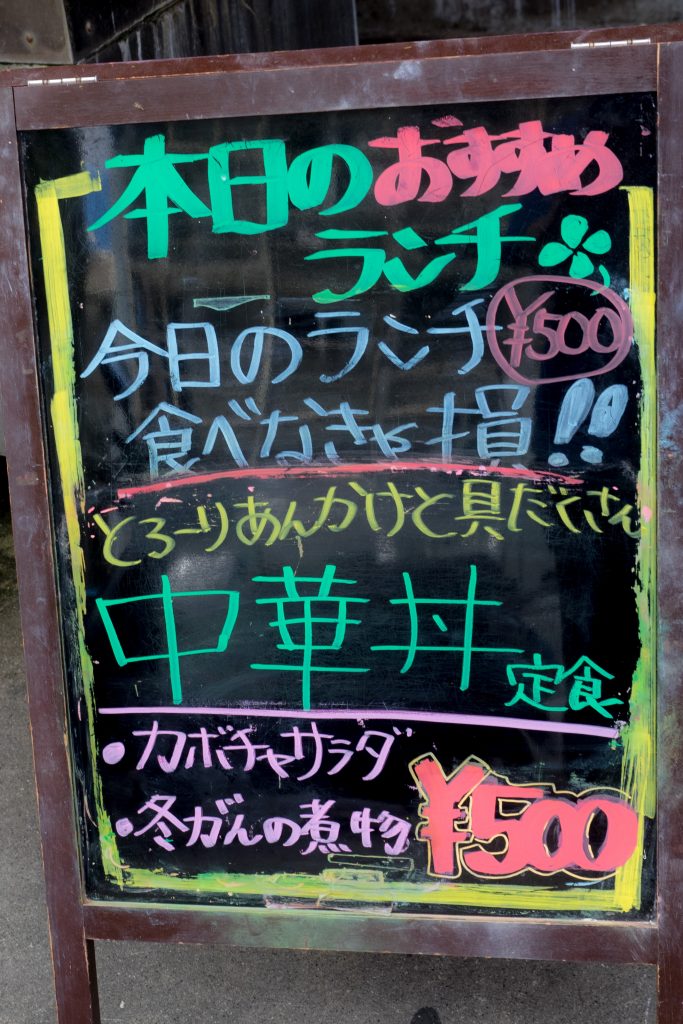 本日のおすすめ
ランチ
今日のランチ ¥500
食べなきゃ損!!
とろーりあんかけと具だくさん
中華丼 定食
・カボチャサラダ
・冬がんの煮物 ¥500